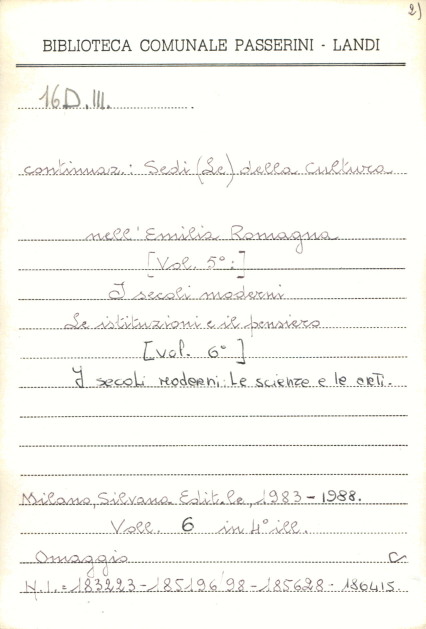 2)
BIBLIOTECA COMUNALE PASSERINI - LANDI
16D.III.
continuaz.: Sedi (Le) della Cultura
nell'Emilia Romagna
[Vol. 5º:]
I secoli moderni
Le istituzioni e il pensiero
[Vol. 6º]
I secoli moderni: Le scienze e le arti.
Milano, Silvana Edit.le, 1983-1988.
Voll. 6 in 4º ill.
Omaggio C
N.I.=183223-185196 98-185628-186415.